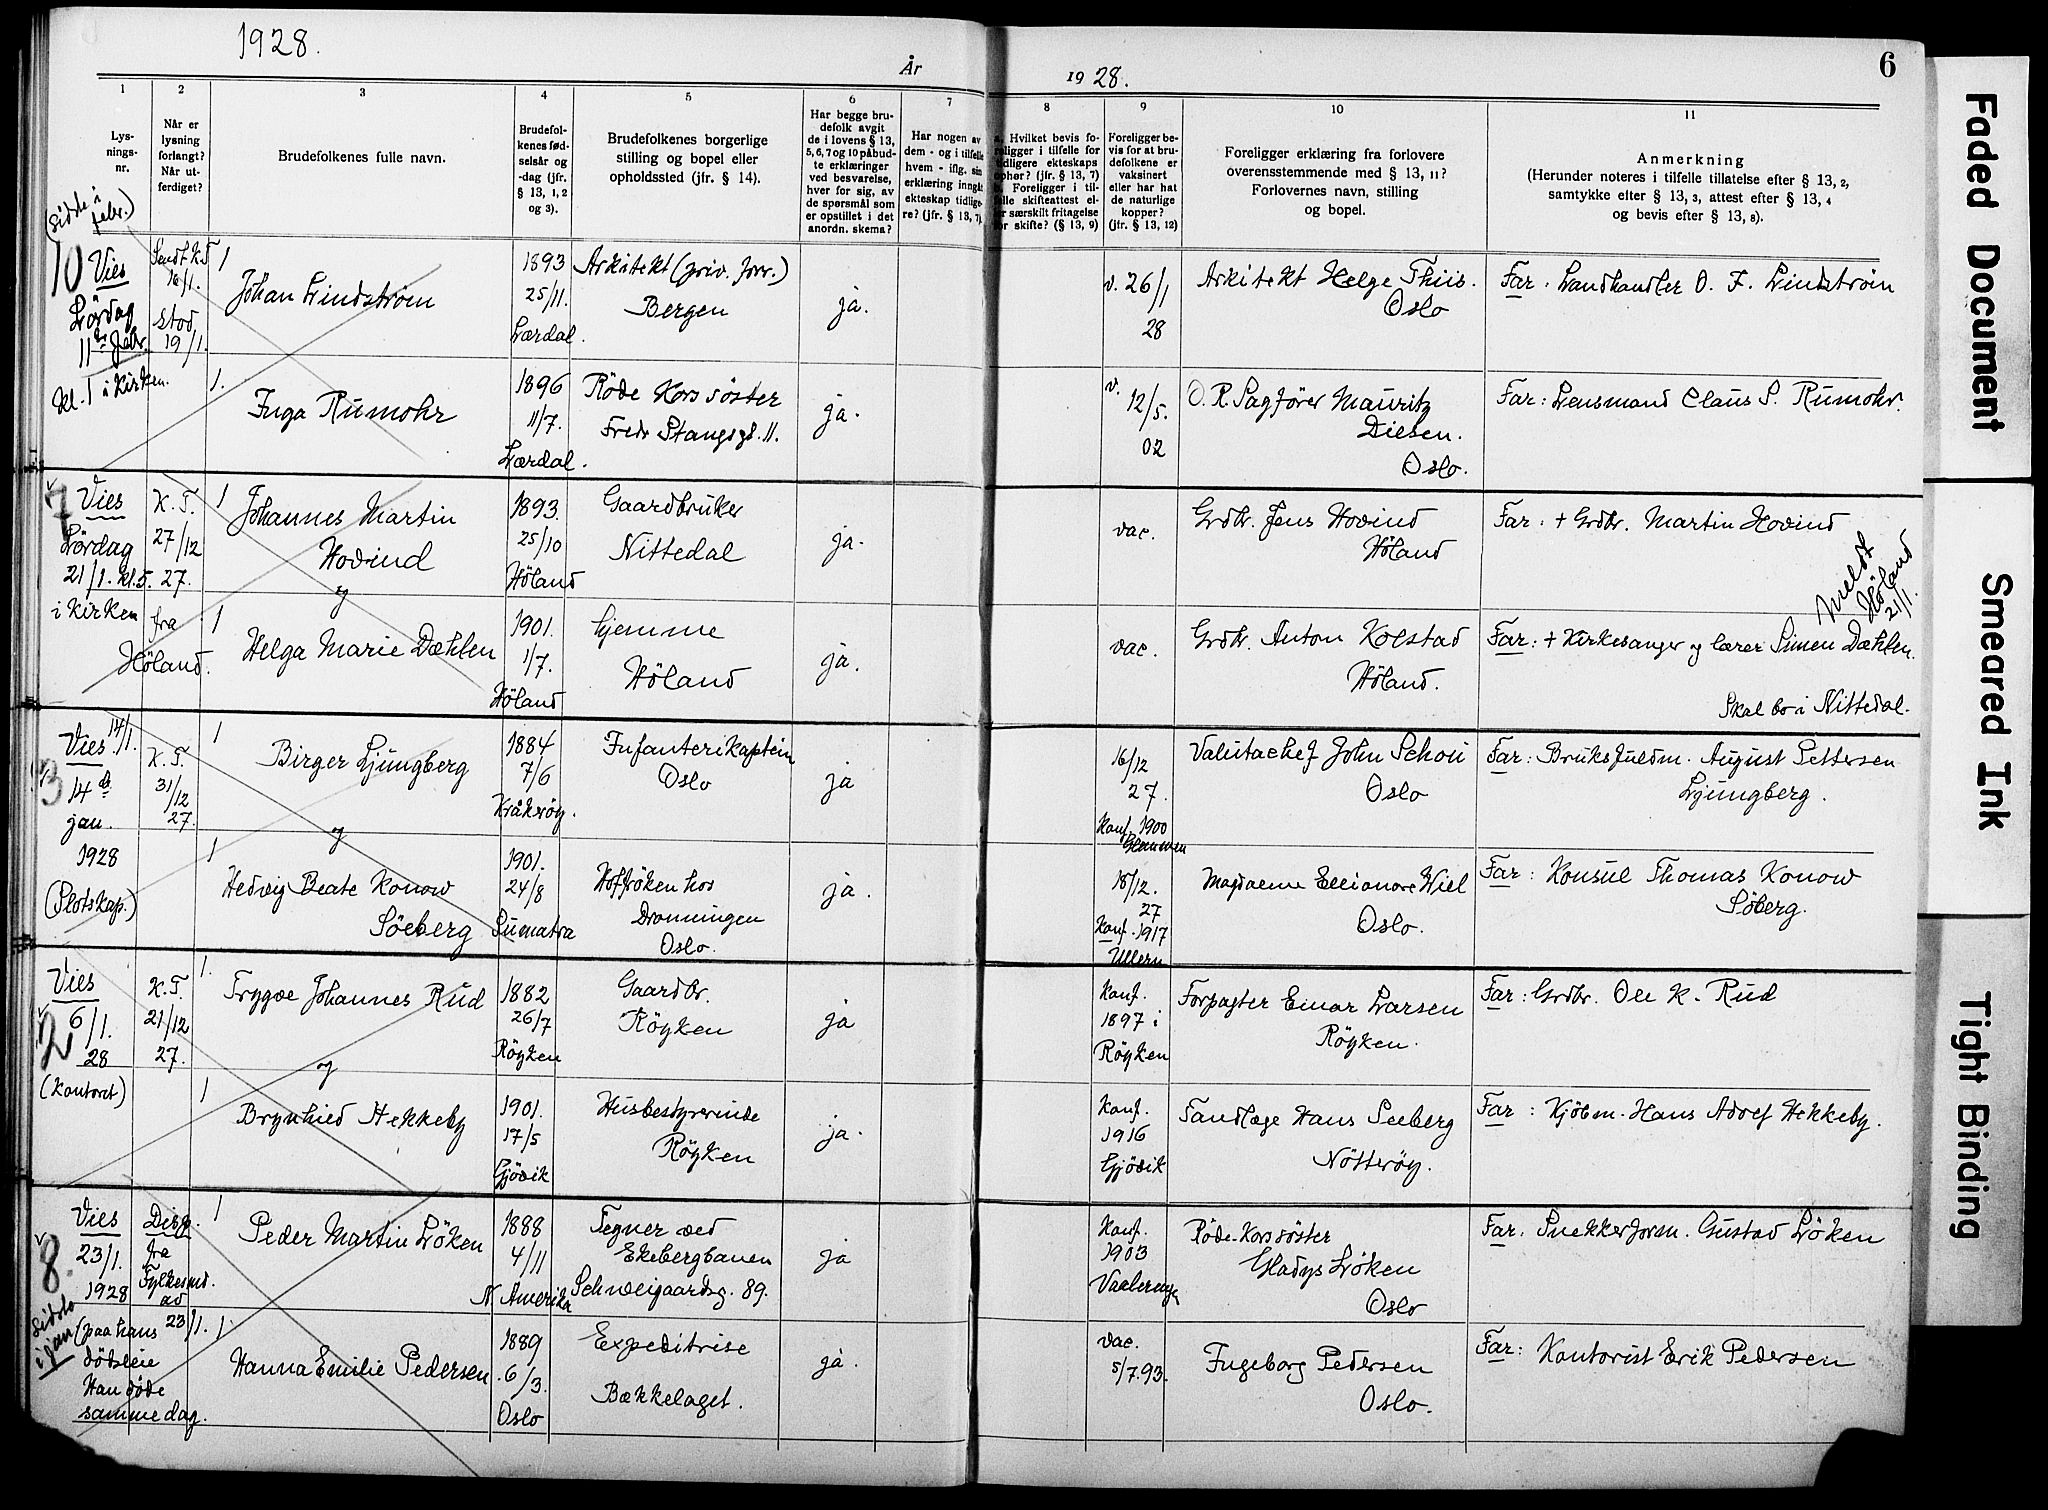 1928.
År
1928.
6
1
Lys-
nings-
nr.
2
Når er
lysning
forlangt?
Når ut-
ferdiget?
3
Brudefolkenes fulle navn.
4
Brudefol-
kenes fød-
selsår og
-dag (jfr.
§ 13, 1, 2
og 3).
5
Brudefolkenes borgerlige
stilling og bopel eller
opholdssted (jfr. § 14).
6
Har begge bru-
defolk avgit
de i lovens § 13,
5, 6, 7 og 10 påbud-
te erklæringer
ved besvarelse,
hver for sig, av
de spørsmål som
er opstillet i det
anordn. skema?
7
Har nogen av
dem - og i tilfelle
hvem - iflg. sin
erklæring inngåt
ekteskap tidlige-
re? (jfr. § 13, 7).
8
a. Hvilket bevis fo-
religger i tilfelle for
tidligere ekteskaps
ophør? (jfr. § 13, 7)
b. Foreligger i til-
felle skifteattest el-
ler særskilt fritagelse
for skifte? (§ 13, 9)
9
Foreligger be-
vis for at bru-
defolkene er
vaksinert
eller har hat
de naturlige
kopper?
(jfr. § 13, 12)
10
Foreligger erklæring fra forlovere
overensstemmende med § 13, 11?
Forlovernes navn, stilling
og bopel.
11
Anmerkning
(Herunder noteres i tilfelle tillatelse efter § 13, 2,
samtykke efter § 13, 3, attest efter § 13, 4
og bevis efter § 13, 8).
(sidde i
febr.)
10 Vies
Lørdag
11te febr.
kl. 1 i kirken.
Sendt K.T
16/1.
Stod
19/1.
1
Johan Lindstrøm
1893
25/11.
Lærdal.
Arkitekt (priv. forr.)
Bergen
ja.
v. 26/1
28
Arkitekt Helge Thiis.
Oslo
Far: Landhandler O. F. Lindstrøm
1.
Inga Rumohr
1896
11/7.
Lærdal.
Røde Kors søster
Fredr Stangsgt. 11.
ja.
v.
12/5.
02
O. R. Sagfører Mauritz
Diesen.
Oslo.
Far: Lensmand Claus S. Rumohr.
7
Vies
Lørdag
21/1. kl. 5.
i kirken
K. T.
27/12
27.
fra
Høland.
1
Johannes Martin
Hovind
og
1893.
25/10
Høland
Gaardbruker
Nittedal
ja.
vac.
Grdbr. Jens Hovind
Høland
Far: + Grdbr. Martin Hovind
Meldt
Høland
21/1.
1
Helga Marie Dæhlen
1901.
1/7.
Høland
hjemme
Høland
ja.
vac.
Grdbr. Anton Kolstad
Høland.
Far: + Kirkesanger og lærer Simen Dæhlen.
Skal bo i Nittedal.
3
Vies 14/1.
14de
jan.
1928
(Slotskap.)
K. T.
31/12
27.
1
Birger Ljungberg
og
1884
7/6
Kråkerøy.
Infanterikaptein
Oslo
ja
16/12
27.
Konf. 1900
Glemmen
Valutachef John Schou
Oslo
Far: Bruksfuldm. August Pettersen
Ljungberg.
1
Hedvig Beate Konow
Söeberg
1901.
24/8
Sumatra
Hoffrøken hos
Dronningen
Oslo.
ja.
18/12.
27
Konf. 1917
Ullern
Magdalene Ellionore Wiel
Oslo.
Far: Konsul Thomas Konow
Søberg.
2
Vies
6/1.
28
(Kontoret)
K.T.
21/12
27.
1.
Trygve Johannes Rud
og
1882
26/7
Røyken
Gaardbr.
Røyken
ja
Konf.
1897 i
Røyken
Forpagter Einar Larsen
Røyken.
Far: Grdbr. Ole K. Rud
1
Brynhild Hekkeby
1901.
17/5
Gjövik
Husbestyrerinde
Røyken
ja.
Konf.
1916
Gjövik
Tandlæge Hans Seeberg
Nøtterøy.
Far: Kjøbm. Hans Adolf Hekkeby.
8.
Vies
23/1.
1928
Disp.
fra
Fylkesmd.
av
23/1.
1
Peder Martin Løken
1888
4/11
N. Amerika
Tegner ved
Ekebergbanen
Schweigaardsg. 89.
ja
Konf.
1903
Vaalerengen
Røde-Korssøster
Gladys Løken
Oslo
Far: Snekkerform. Gustav Løken
sidste
i jan
(paa hans
dødsleie
Han døde
samme dag.
1
Hanna Emilie Pedersen
1889
6/3.
Oslo
Expeditrise
Bækkelaget.
ja.
vac.
5/7.93.
Ingeborg Pedersen
Oslo.
Far: Kontorist Erik Pedersen
Faded Document
Smeared Ink
Tight Binding